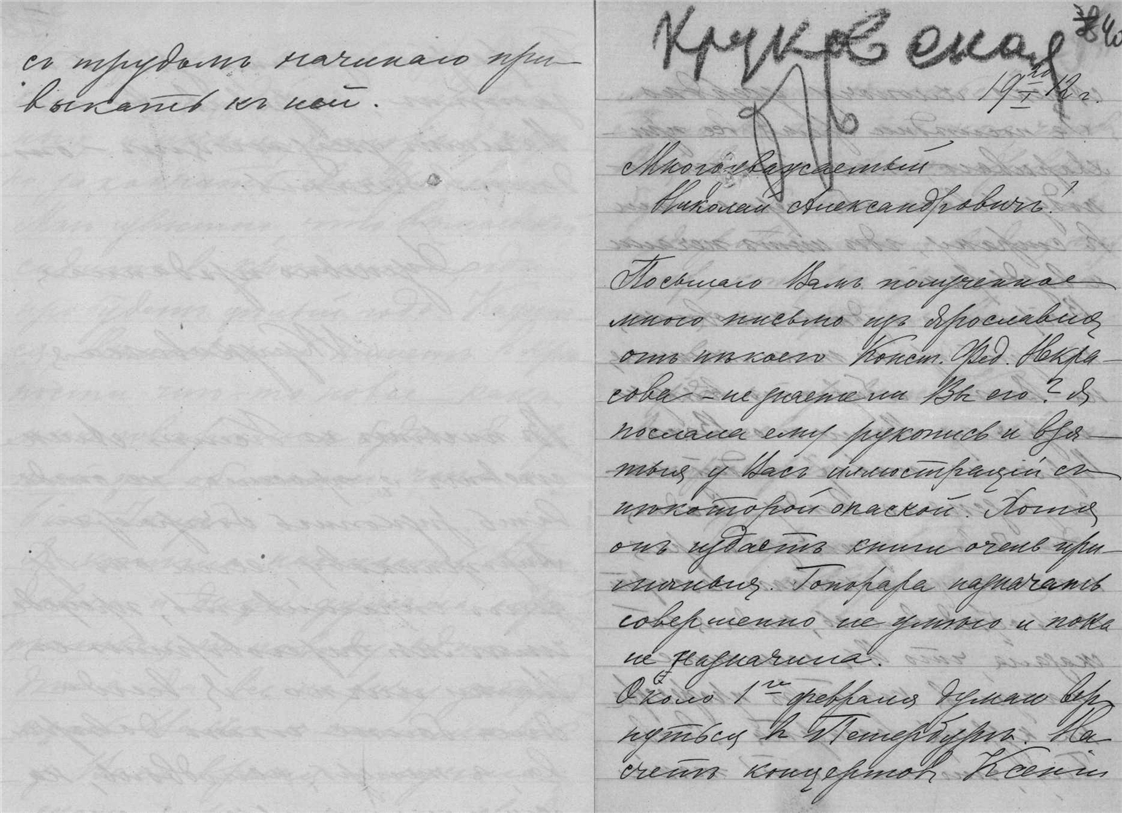 съ трудомъ начинаю при-
выкать къ ней.
Круковская
19 I 12 г.
Многоуважаемый
Николай Александровичъ!
Посылаю Вамъ полученное
мною письмо изъ Ярославля
отъ нѣкоего Конст. Фед. Некра-
сова – не знаете ли Вы его? Я
послала ему рукопись и взя-
тыя у Васъ иллюстрацiй съ
нѣкоторой опаской. Хотя
онъ издаетъ книги очень при-
личныя. Гонорара назначать
совершенно не умѣю и пока
не назначила.
Около 1го февраля думаю вер-
нуться въ Петербургъ. На
счетъ концертовъ Ксенiи